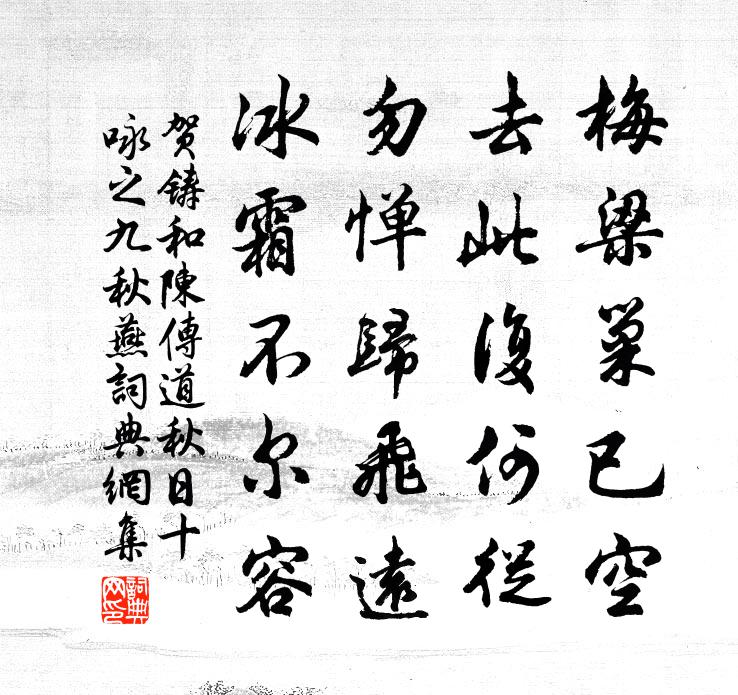 梅梁巢已空
去此復何從
勿惮歸飛遠
冰霜不尔容
贺鑄和陳傳道秋日十
咏之九秋燕詞典網集
詞典